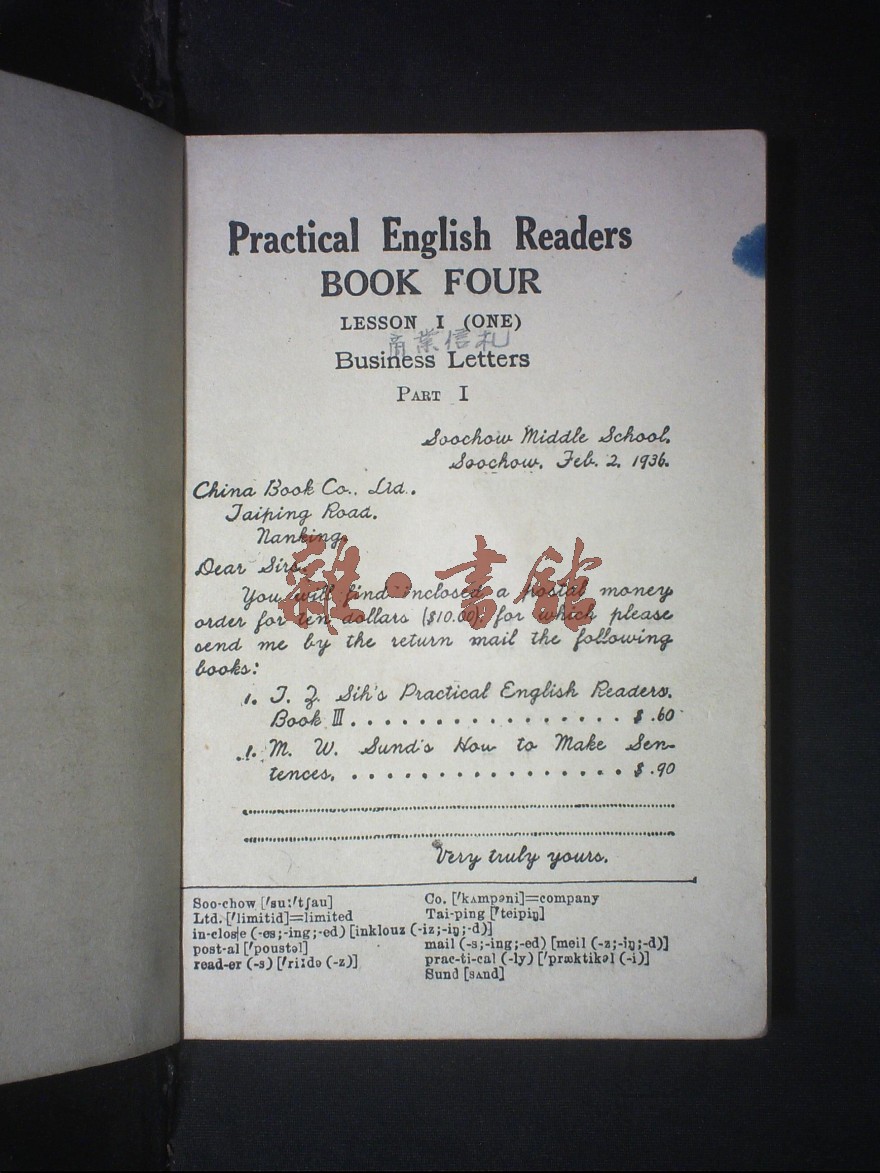 Practical English Readers
BOOK FOUR
LESSON I (ONE)
商業信札
Business Letters
PART I
Soochow Middle School,
Soochow, Feb. 2, 1936.
China Book Co., Ltd.,
Taiping Road,
Nanking.
Dear Sirs,
You will find inclosed a postal money
order for ten dollars ($10.00), for which please
send me by the return mail the following
books:
1. T. Z. Sih's Practical English Readers,
Book III. . . . . . . . . . . . . . . . $ .60
1. M. W. Sund's How to Make Sen-
tences. . . . . . . . . . . . . . . . . $ .90
Very truly yours,
雜·書館
Soo-chow ['su:'tʃau] Co. ['kʌmpəni]=company
Ltd. ['limitid]=limited Tai-ping ['teipiŋ]
in-close (-es;-ing;-ed) [inklouz (-iz;-iŋ;-d)]
post-al ['poustəl] mail (-s;-ing;-ed) [meil (-z;-iŋ;-d)]
read-er (-s) ['ri:də (-z)] prac-ti-cal (-ly) ['præktikəl (-i)]
Sund [sʌnd]